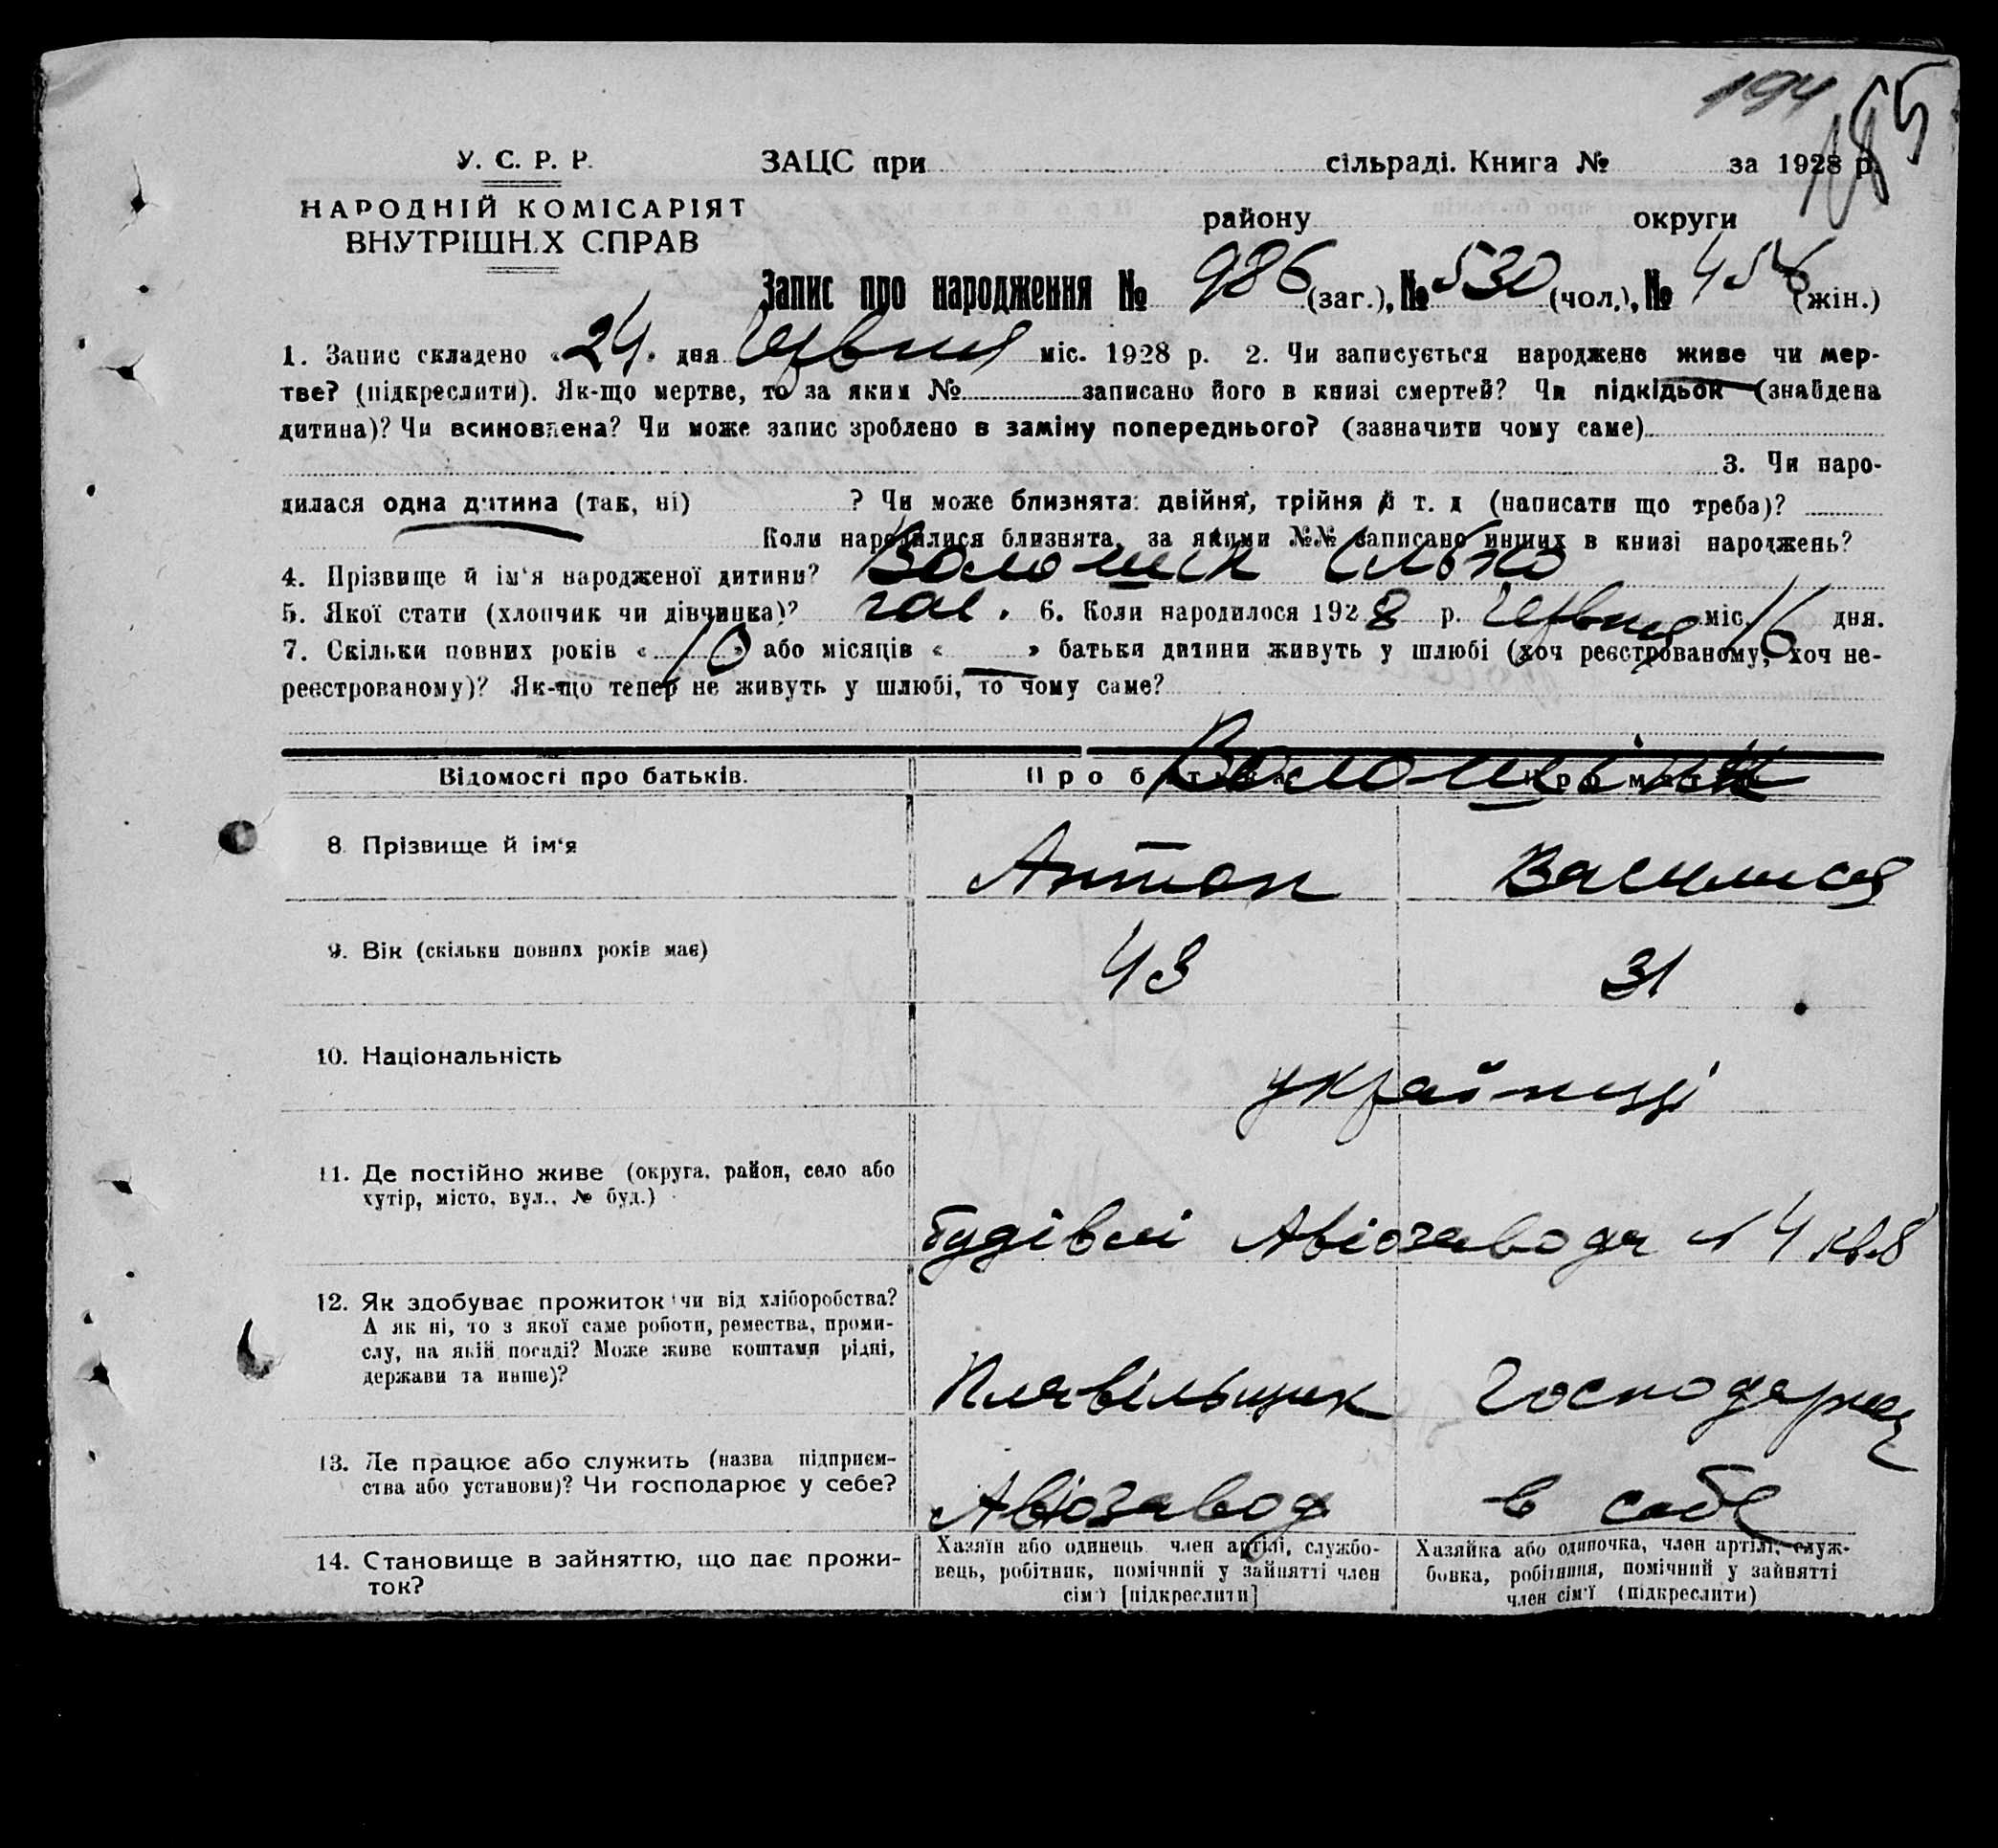 194
185
У. С. Р. Р. ЗАЦС при сільраді. Книга № за 1928 р.
НАРОДНІЙ КОМІСАРІЯТ району округи
ВНУТРІШНІХ СПРАВ
Запис про народження № 986 (заг.), № 530 (чол.), № 456 (жін.)
1. Запис складено «24» дня Червня міс. 1928 р. 2. Чи записується народжене живе чи мер-
тве? (підкреслити). Як-що мертве, то за яким № записано його в книзі смертей? Чи підкідьок (знайдена
дитина)? Чи всиновлена? Чи може запис зроблено в заміну попереднього? (зазначити чому саме)
3. Чи наро-
дилася одна дитина (так, ні) ? Чи може близнята: двійня, трійня й т. д (написати що треба)?
Коли народилися близнята, за якими №№ записано инших в книзі народжень?
4. Прізвище й ім'я народженої дитини? Волошин Ілько
5. Якої стати (хлопчик чи дівчинка)? чол. 6. Коли народилося 1928 р. Червня міс. 16 дня.
7. Скільки повних років «10» або місяців « » батьки дитини живуть у шлюбі (хоч реєстрованому, хоч не-
реєстрованому)? Як-що тепер не живуть у шлюбі, то чому саме?
Відомості про батьків. Про батька Про матір
Волошини
8. Прізвище й ім'я Антон Василися
9. Вік (скільки повних років має) 43 31
10. Національність українці
11. Де постійно живе (округа, район, село або
хутір, місто, вул., № буд.)
будівлі Авіозавода № 4 кв. 8
12. Як здобуває прожиток чи від хліборобства?
А як ні, то з якої саме роботи, ремества, проми-
слу, на якій посаді? Може живе коштами рідні,
держави та инше)?
Плавільщик Господарка
13. Де працює або служить (назва підприєм-
ства або установи)? Чи господарює у себе?
Авіозавод в себе
14. Становище в зайняттю, що дає прожи-
ток?
Хазяїн або одинець член артілі, службо-
вець, робітник, помічний у зайнятті член
сім'ї [підкреслити]
Хазяйка або одиночка, член артілі, служ-
бовка, робітниця, помічний у зайнятті
член сім'ї (підкреслити)